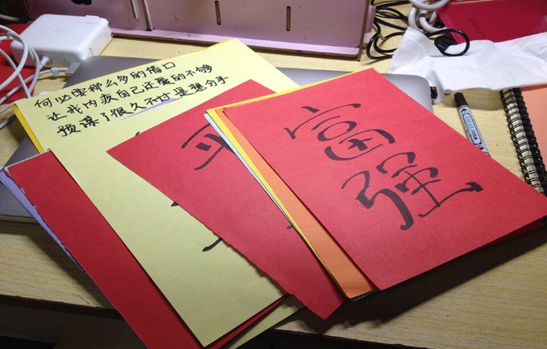 何必那么多的借口
让我内疚自己还爱的不够
预谋了很久不过是想分手
富
强